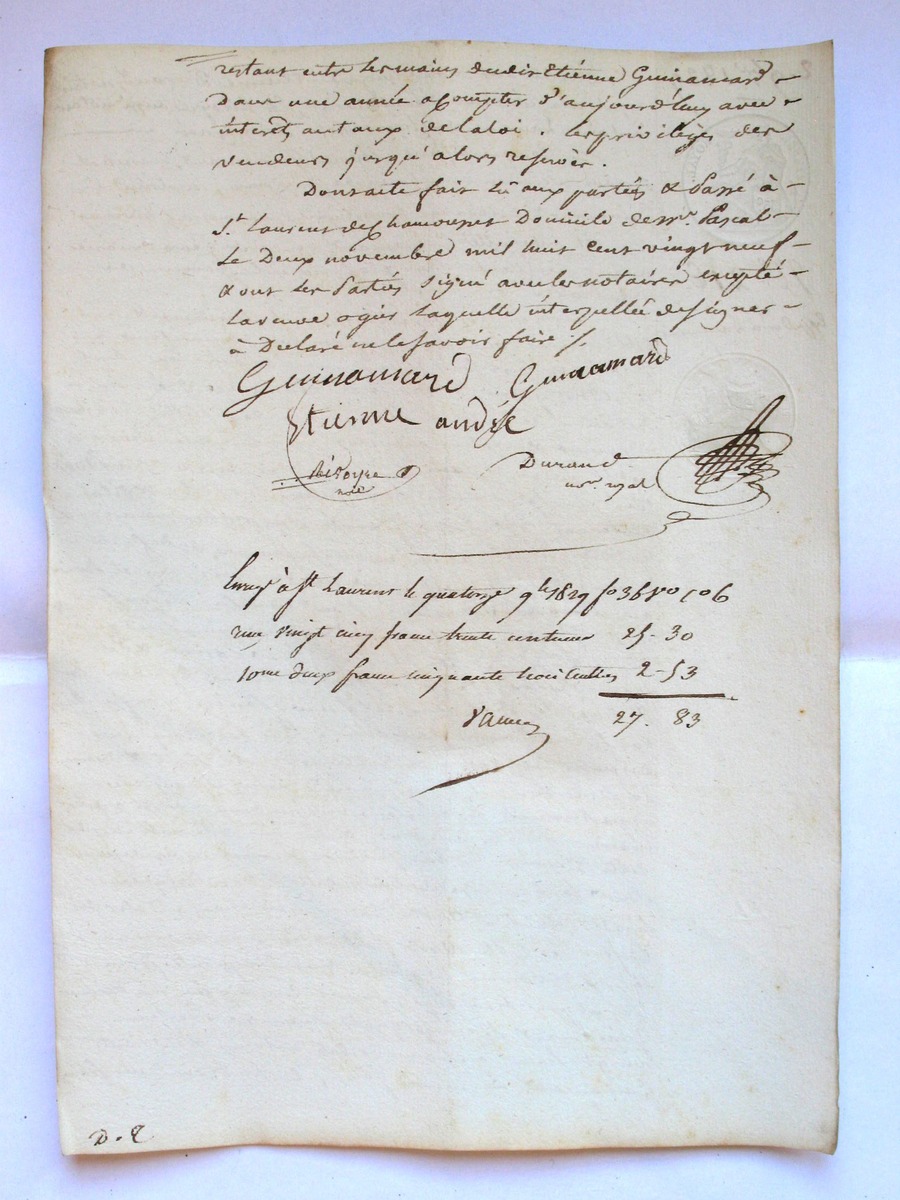 restant entre les mains dudit Etiénne Guinamard
Dans une année a Compter d'aujourd'huy avec
intérèts au taux de la loi. les privilèges des
vendeurs jusqu'alors reservés.
Dont acte fait lû aux partiés & Passé à
St. Laurent de Chamousset Domicile de Mr. Pascal
Le Deux novembre mil huit cent vingt neuf
& ont les Partiés signé avec les notaires excepté
la veuve ogier laquelle interpellée de signer
à Declaré ne le savoir faire ./.
Guinamard Guinamard
Etienne andré
notre
Durand
nore. royal
Enregé à St Laurent le quatorze 9bre 1829 fo 36 Vo Co 6
reçu vingt cinq francs trente centimes 25-30
10eme deux francs cinquante trois centes 2-53
27. 83
D. 2